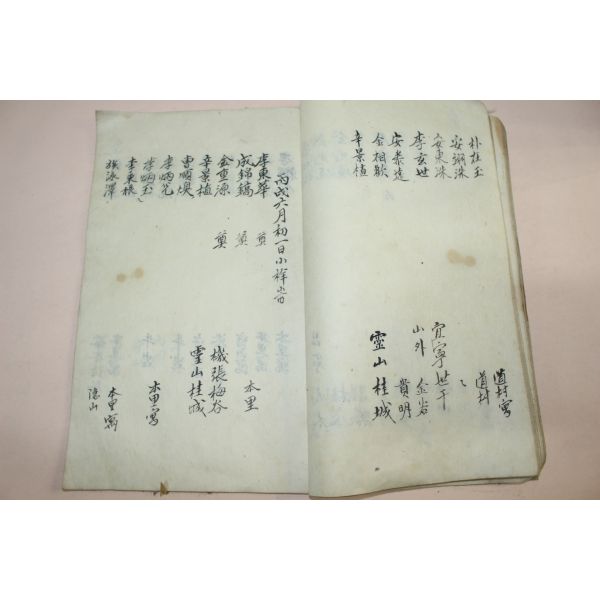 朴柱玉 道村寓
安鋼洙 道村
安東洙 〻
李玄世 宜寧世干
安泰遠 山外 金岩
金相歇 貴明
辛景植 靈山桂城
丙戌六月初一日小祥時
李東華 奠 本里
成錦鎬 奠
金重源 奠 機張梅谷
辛景植 靈山桂城
曺順煥
李炳先 本里寓
李炳玉 〻
李東根 本里寓
族泳澤 德山